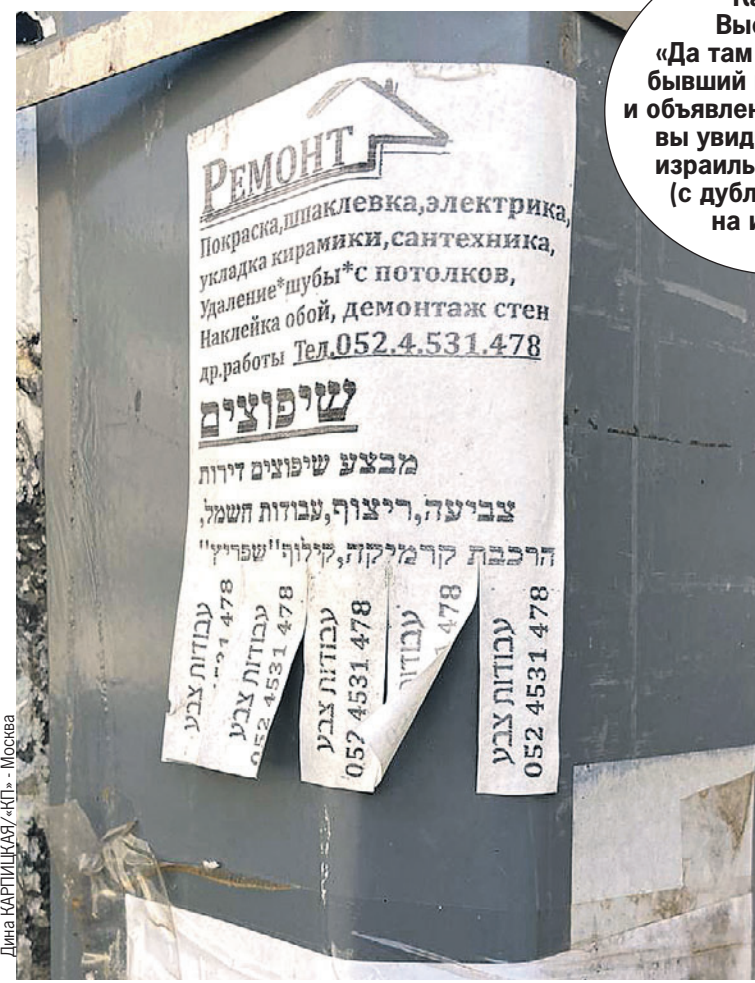 Ка
Выс
«Да там
бывший
и объявлен
вы увид
израиль
(с дубл
на и
РЕМОНТ
Покраска,шпаклевка,электрика,
укладка кирамики,сантехника,
Удаление*шубы*с потолков,
Наклейка обой, демонтаж стен
др.работы Тел.052.4.531.478
שיפוצים
מבצע שיפוצים דירות
צביעה,ריצוף,עבודות חשמל,
הרכבת קרמיקה,קילוף"שפריץ"
עבודות צבע
4531 478
עבודות צבע
052 4531 478
עבודות צבע
052 4531 478
478
עבודות צבע
052 4531 478
Дина КАРПИЦКАЯ/«КП» - Москва